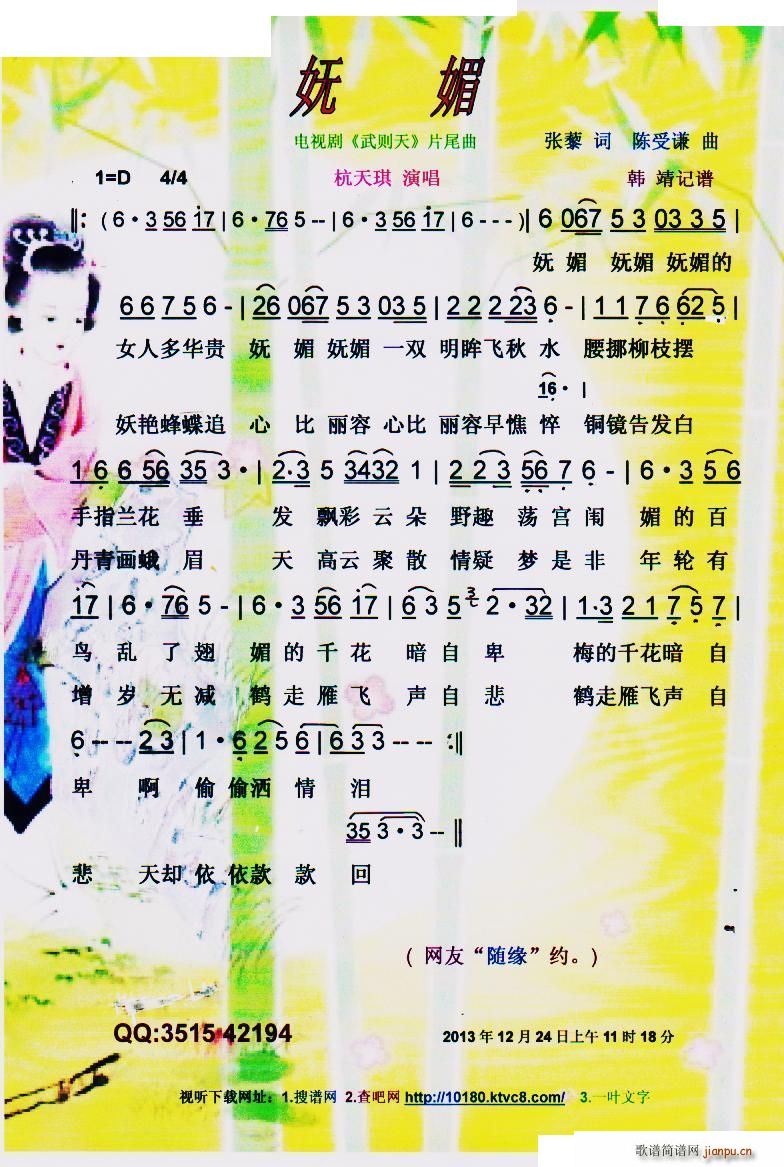 妩 媚
电视剧《武则天》片尾曲 张藜 词 陈受谦 曲
1=D 4/4 杭天琪 演唱 韩 靖记谱
‖: ( 6· 3 56 i7 | 6· 76 5 -- | 6· 3 56 i7 | 6 - - - ) ‖ 6 067 5 3 03 3 5 |
妩 媚 妩媚 妩媚的
6 6 7 5 6 - | 26 067 5 3 03 5 | 2 2 2 23 6 - | 1 1 7 6 62 5 |
女人多华贵 妩 媚 妩媚 一双 明眸飞秋 水 腰挪柳枝摆
16· |
妖艳蜂蝶追 心 比 丽容 心比 丽容早憔 悴 铜镜告发白
1 6 6 56 35 3· | 2·3 5 3432 1 | 2 2 3 56 7 6 - | 6· 3 5 5 6
手指兰花 垂 发 飘彩 云 朵 野趣 荡宫 闱 媚 的 百
丹青画蛾 眉 天 高云 聚 散 情疑 梦 是 非 年 轮 有
i7 | 6· 76 5 - | 6· 3 56 i7 | 6 3 5 2· 32 | 1·3 2 1 7 5 7 |
鸟 乱 了 翅 媚 的 千 花 暗 自 卑 梅的千花暗 自
增 岁 无 减 鹤 走 雁 飞 声 自 悲 鹤走雁飞声 自
6 -- -- 2 3 | 1· 6 2 5 6 | 6 3 3 -- -- :‖
卑 啊 偷 偷洒 情 泪
35 3· 3 -- ‖
悲 天却 依 依款 款 回
( 网友“随缘”约。)
QQ:3515 42194 2013 年 12 月 24 日上午 11 时 18 分
视听下载网址：1.搜谱网 2.查吧网 http://10180.ktvc8.com/ 3.一叶文字
歌谱简谱网 jianpu.cn